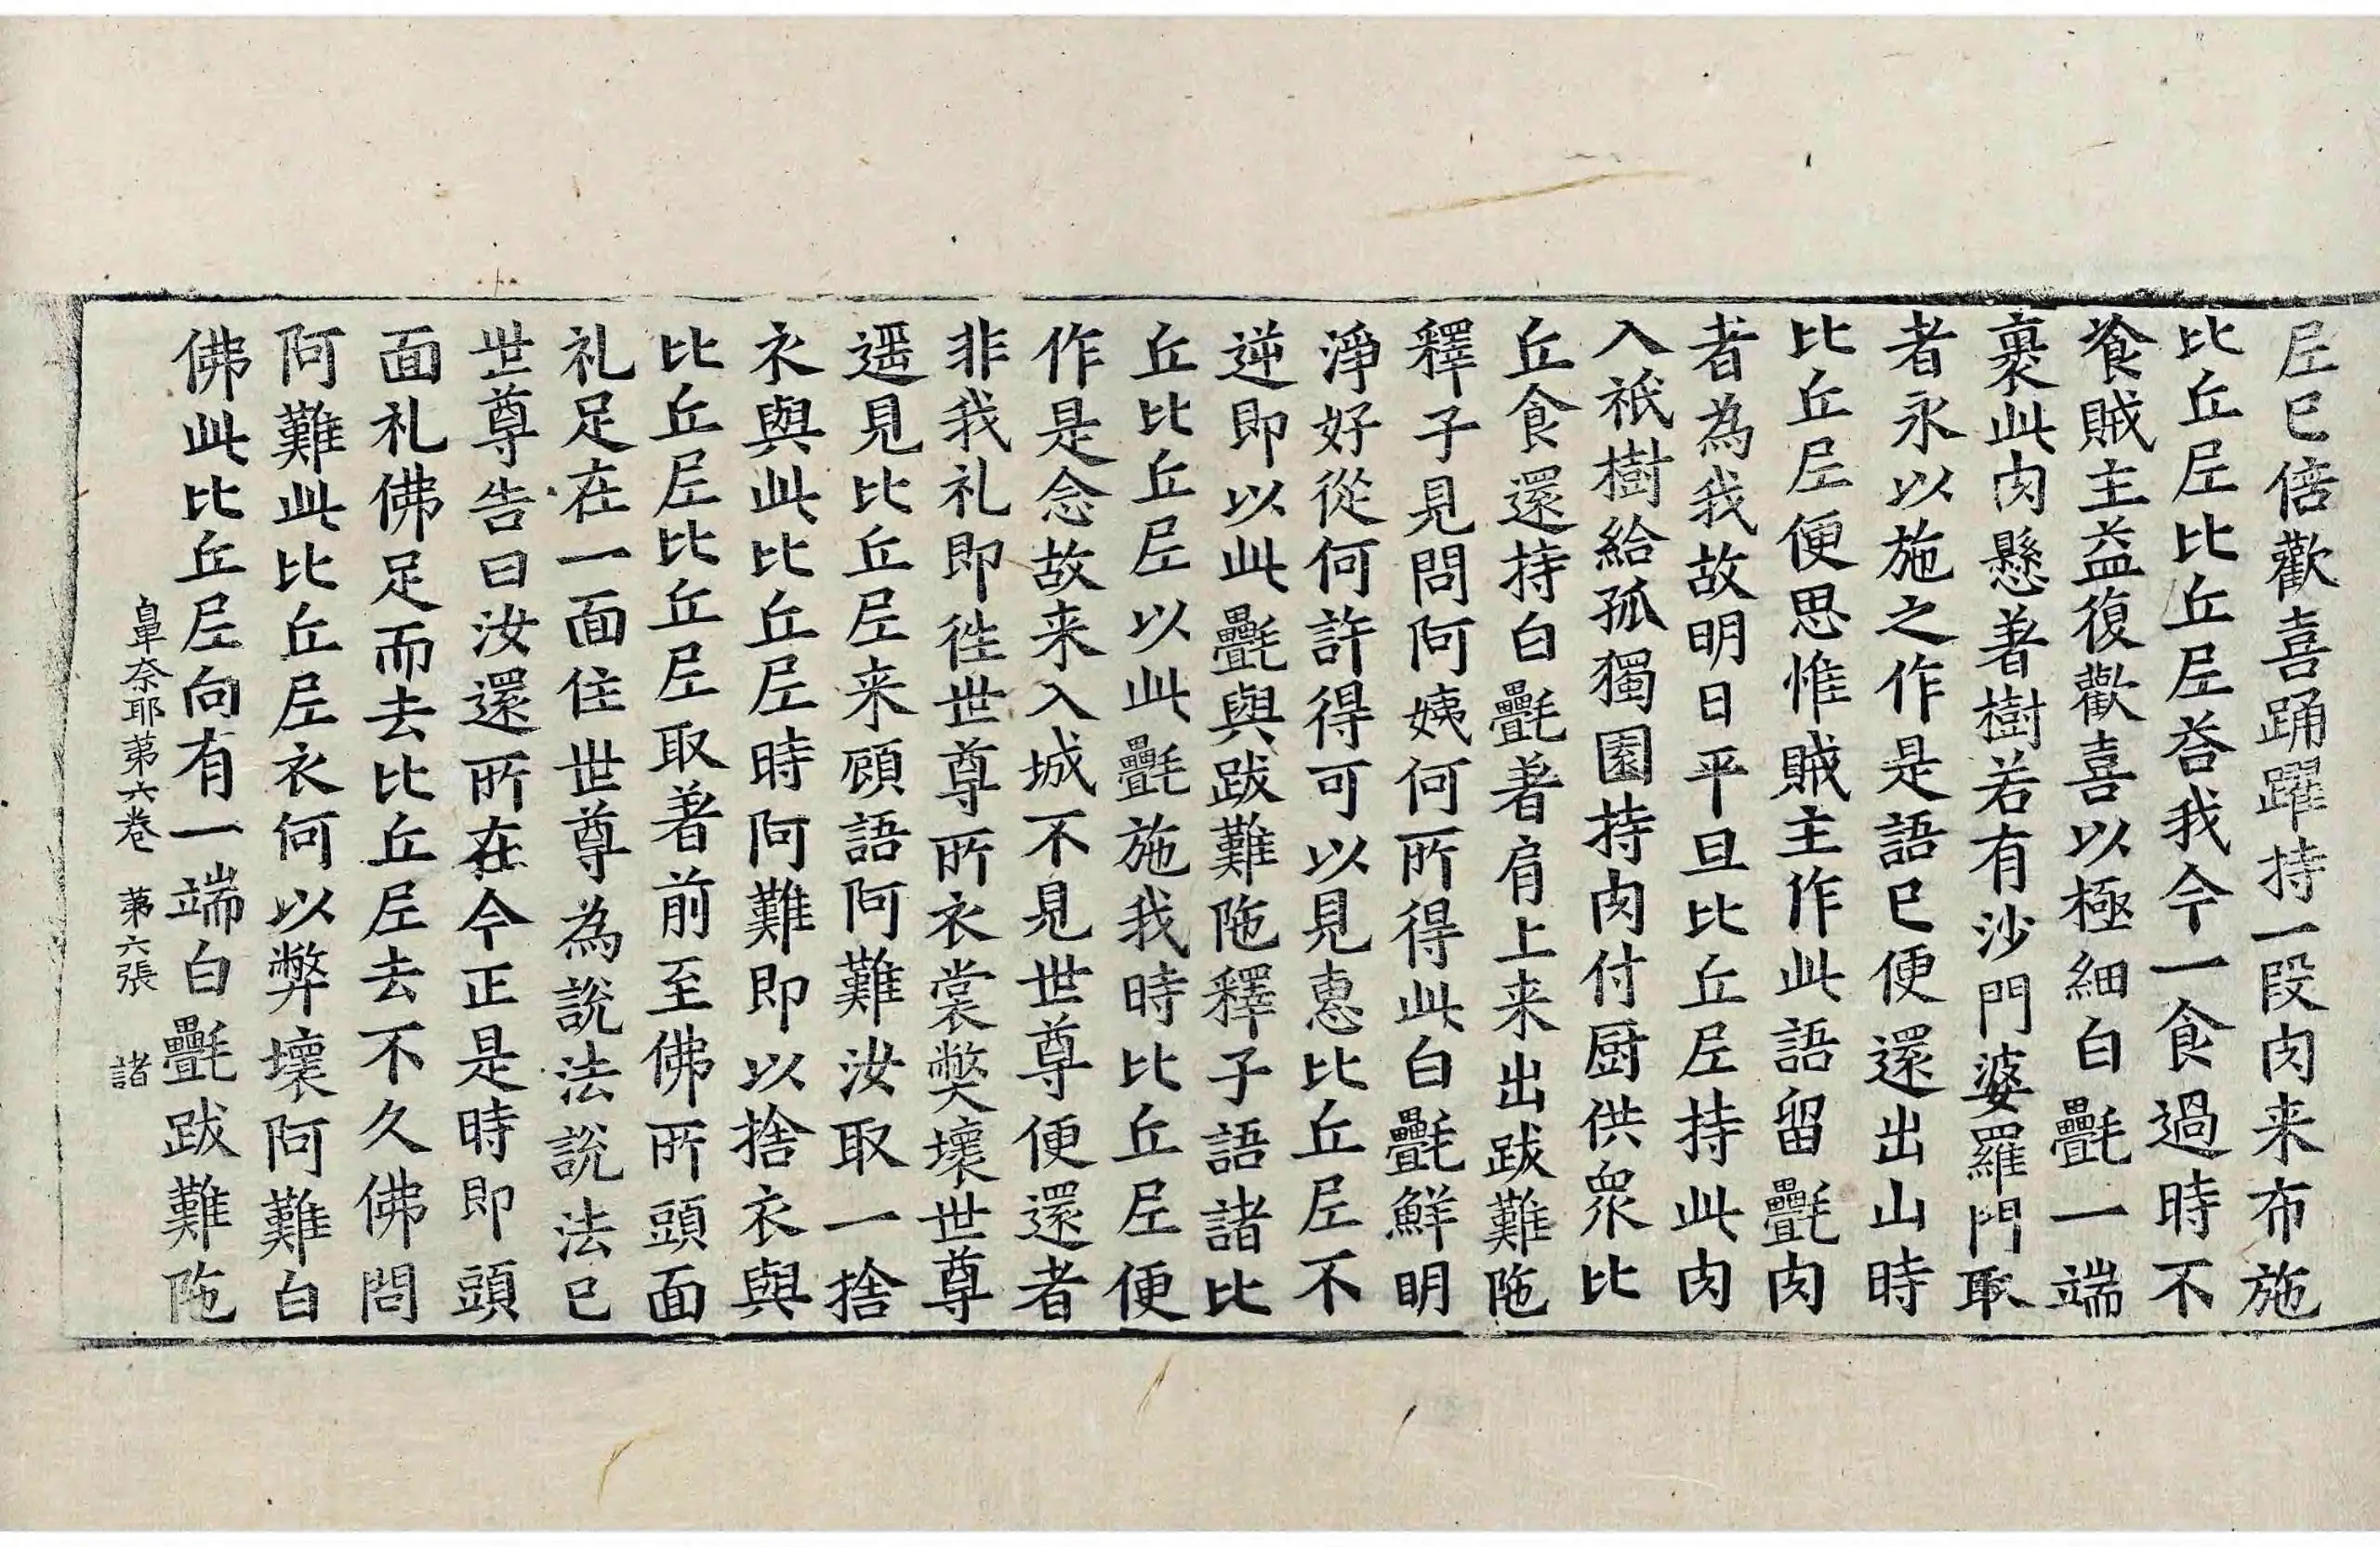 尼已倍歡喜踊躍持一段肉来布施
比丘尼比丘尼荅我今一食過時不
飡賊主益復歡喜以極細白㲲一端
裹此肉懸著樹若有沙門婆羅門取
者永以施之作是語已便還出山時
比丘尼便思惟賊主作此語留㲲肉
者為我故明日平旦比丘尼持此肉
入祇樹給孤獨園持肉付厨供衆比
丘食還持白㲲著肩上来出跋難陁
釋子見問阿姨何所得此白㲲鮮明
淨好從何許得可以見惠比丘尼不
逆即以此㲲與跋難陁釋子語諸比
丘比丘尼以此㲲施我時比丘尼便
作是念故来入城不見世尊便還者
非我礼即徃世尊所衣裳獘壞世尊
遥見比丘尼来顧語阿難汝取一捨
衣與此比丘尼時阿難即以捨衣與
比丘尼比丘尼取著前至佛所頭面
礼足在一面住世尊為說法說法已
世尊告曰汝還所在今正是時即頭
面礼佛足而去比丘尼去不久佛問
阿難此比丘尼衣何以弊壞阿難白
佛此比丘尼向有一端白㲲跋難陁
鼻奈耶苐六卷 苐六張 諸